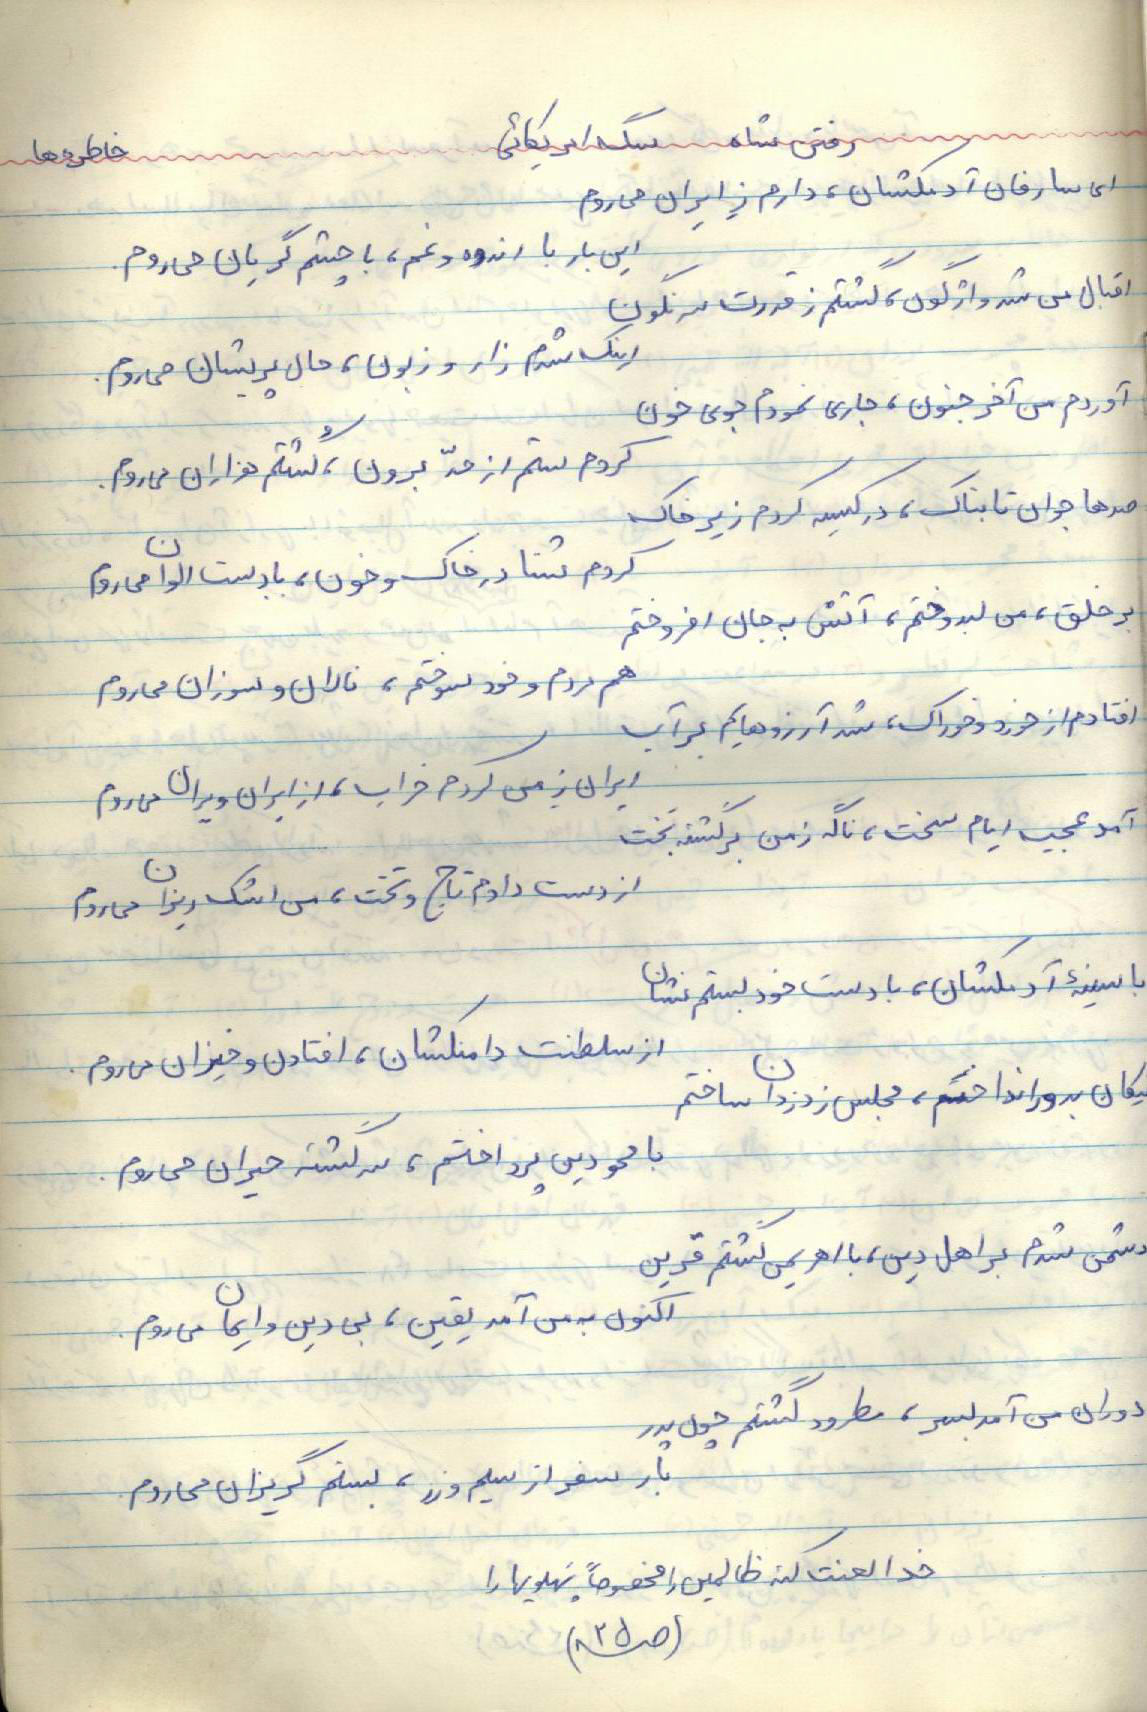 خاطره‌ها
رفتن شاه سگ امریکائی
ای سارقان آدمکشان، دارم ز ایران می‌روم
این بار با اندوه و غم، با چشم گریان می‌روم.
اقبال من شد واژگون، گشتم ز قدرت سرنگون
اینک شدم زار و زبون، حال پریشان می‌روم.
آوردم من آخر جنون، جاری نمودم جوی خون
کردم ستم از حدّ برون، کُشتم هزاران می‌روم.
صدها جوان تابناک، در کیسه کردم زیر خاک
کردم شنا در خاک و خون، با دست الوان می‌روم
بر خلق، من لب دوختم، آتش به جان افروختم
هم مردم و خود سوختم، نالان و سوزان می‌روم
افتادم از خورد و خوراک، شد آرزوهایم بر آب
ایران ز من کردم خراب، از ایران ویران می‌روم
آمد عجیب ایام سخت، ناگه ز من برگشته بخت
از دست دادم تاج و تخت، من اشک ریزان می‌روم
با سینهٔ آدمکشان، با دست خود بستم نشان
از سلطنت دامنکشان، افتادن و خیزان می‌روم.
نیکان بدور انداختم، مجلس ز دزدان ساختم
با محو دین پرداختم، سرگشته حیران می‌روم.
دشمن شدم بر اهل دین، با اهریمن گشتم قرین
اکنون به من آمد یقین، بی دین و ایمان می‌روم.
دوران من آمد بسر، مطرود گشتم چون پدر
بار سفر از سیم و زر، بستم گریزان می‌روم.
خدا لعنت کند ظالمین را مخصوصاً پهلویها را